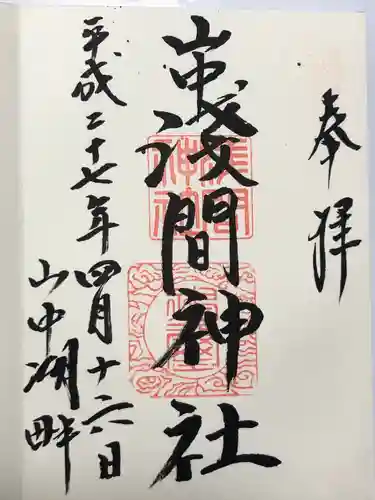 奉拝
山中淺間神社
平成二十七年四月十六日
山中湖畔